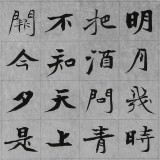 明月幾時
把酒問青
不知天上
闕今夕是